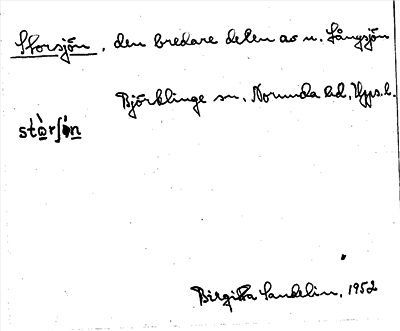 Storsjön, den bredare delen av n. Långsjön
Björklinge sn. Norunda hd, Upps. l.
stòrʃö́n
Birgitta Sandelin, 1952